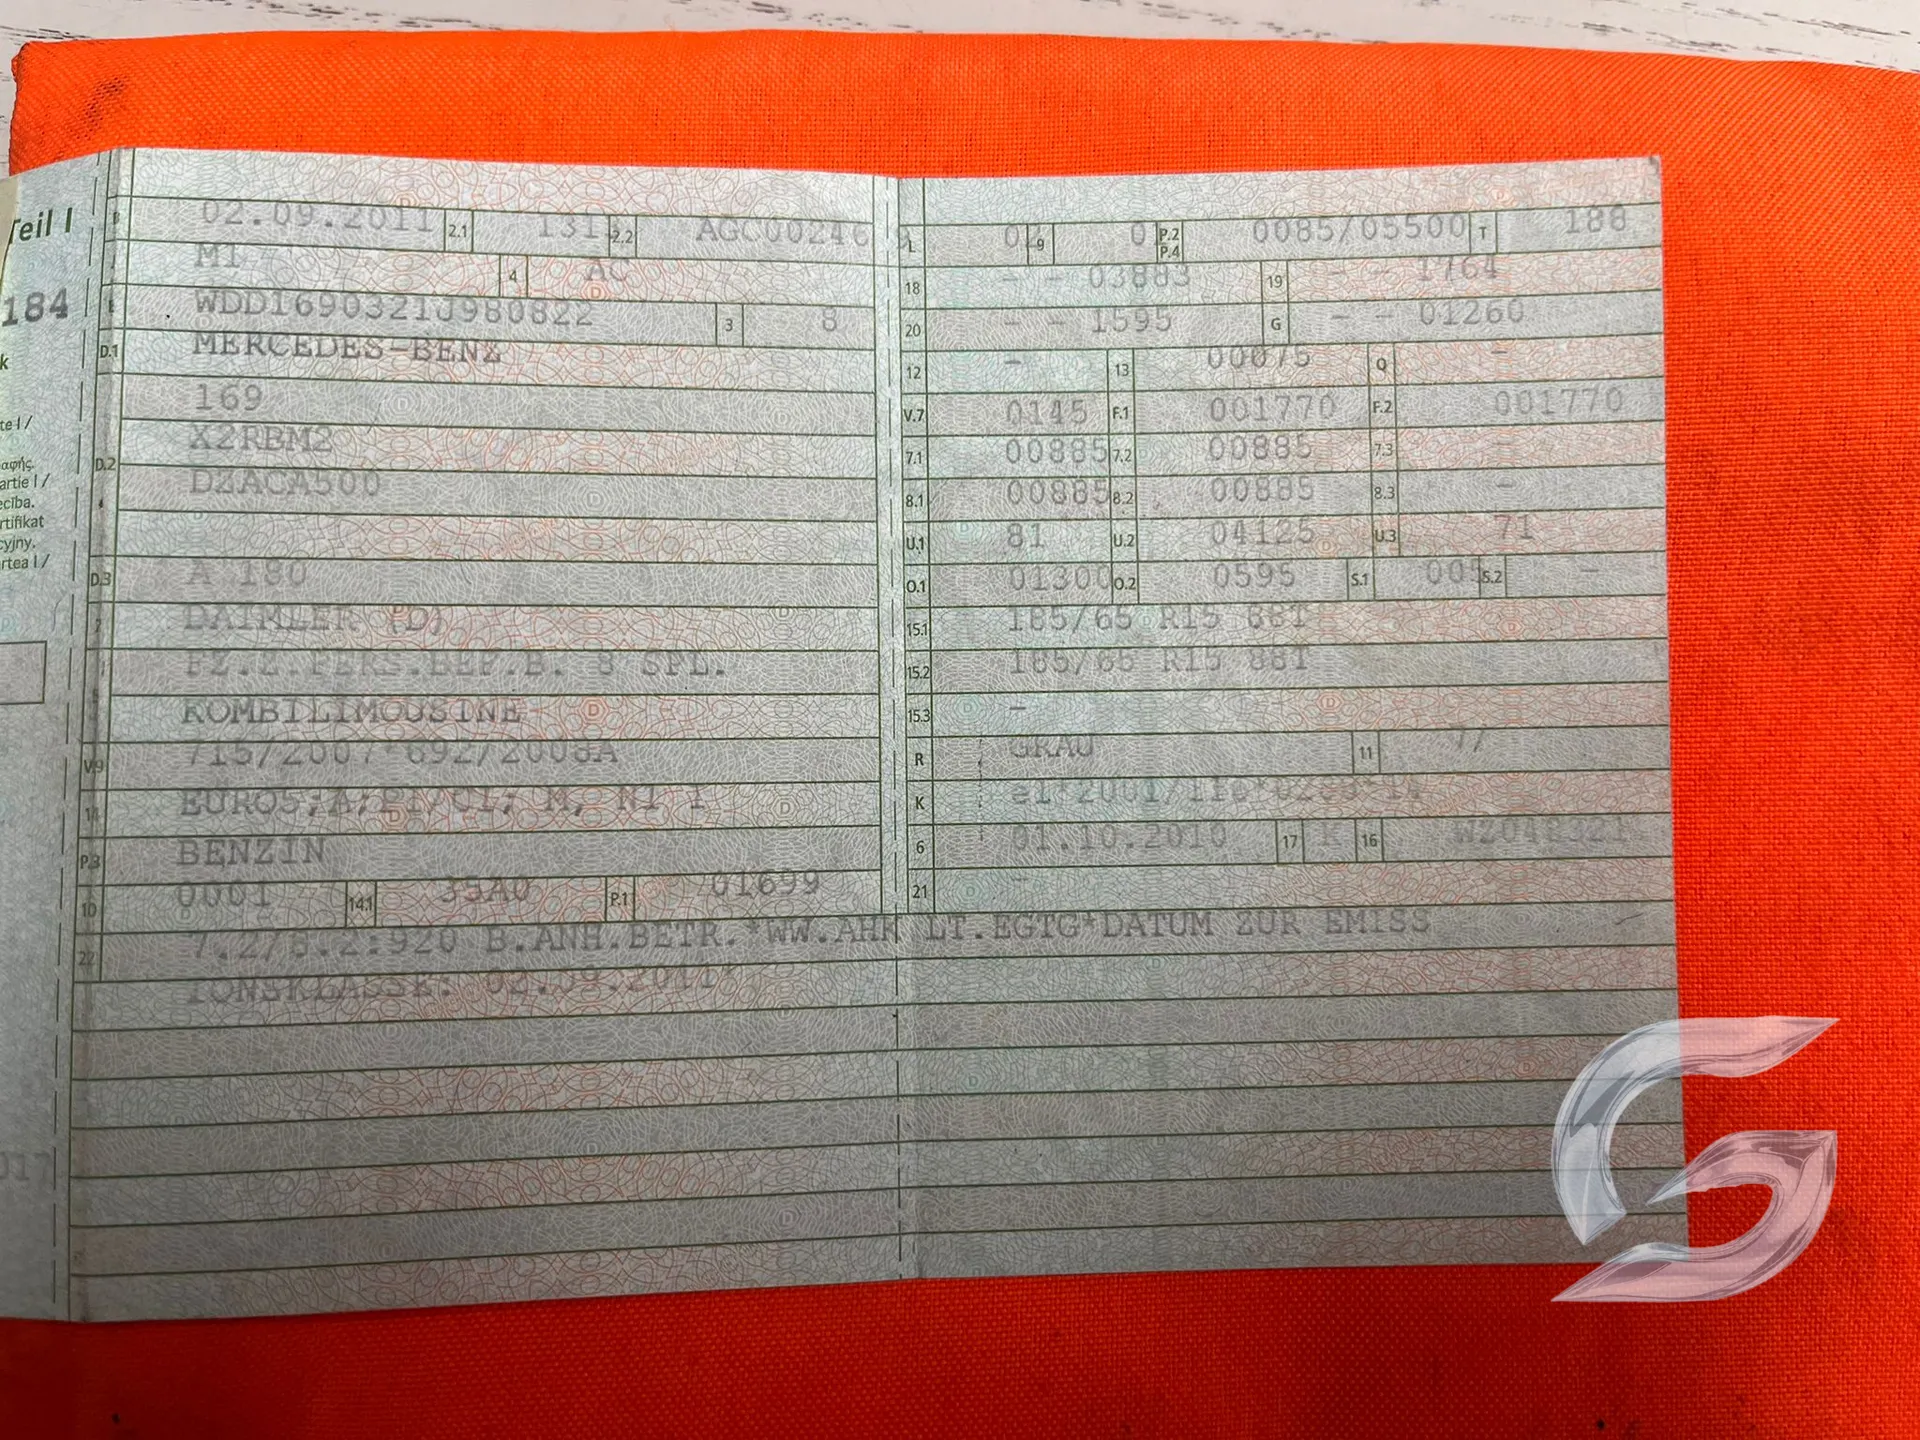 Teil I
184
k
te I /
αφής.
artie I /
ecība.
rtifikat
cyjny.
rtea I /
B 02.09.2011 2.1 1313 2.2 AGC00246
M1 4 AC
WDD1690321J980822 3 8
D.1 MERCEDES-BENZ
169
X2RBM2
D.2
DZACA500
D.3 A 180
2 DAIMLER (D)
FZ.Z.PERS.BEF.B. 8 SPL.
KOMBILIMOUSINE
V.9 715/2007*692/2008A
14 EURO5;A;PI/CI; M, N1 I
P.3 BENZIN
10 0001 14.1 35A0 P.1 01699
L 02 9 0 P.2 P.4 0085/05500 T 188
18 - - 03883 19 - - 1764
20 - - 1595 G - - 01260
12 - 13 00075 Q -
V.7 0145 F.1 001770 F.2 001770
7.1 00885 7.2 00885 7.3 -
8.1 00885 8.2 00885 8.3 -
U.1 81 U.2 04125 U.3 71
O.1 01300 O.2 0595 S.1 005 S.2 -
15.1 185/65 R15 88T
15.2 185/65 R15 88T
15.3 -
R GRAU 11
K
6 01.10.2010 17 K 16 WZ048321
21 -
22 7.2/8.2:920 B.ANH.BETR.*WW.AHK LT.EGTG*DATUM ZUR EMISS -
IONSKLASSE: 02.09.2011*